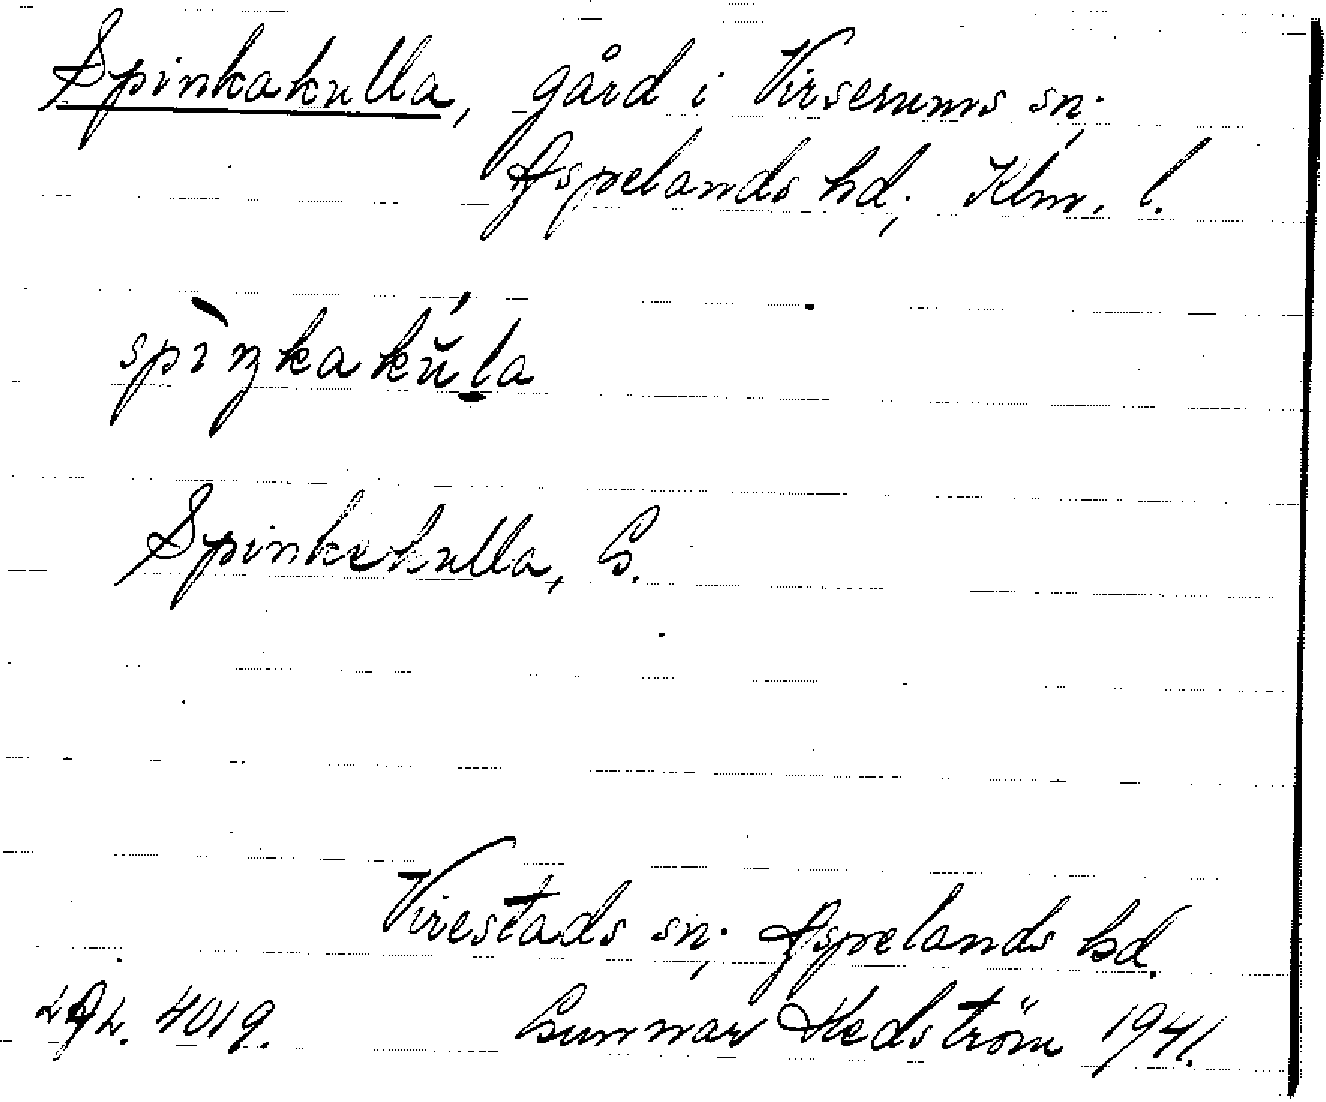 Spinkakulla, gård i Virserums sn;
Aspelands hd; Klm. l.
spìŋkakŭ́l̠a
Spinkekulla, G.
Virestads sn; Aspelands hd.
4019. Gunnar Hedström 1941.